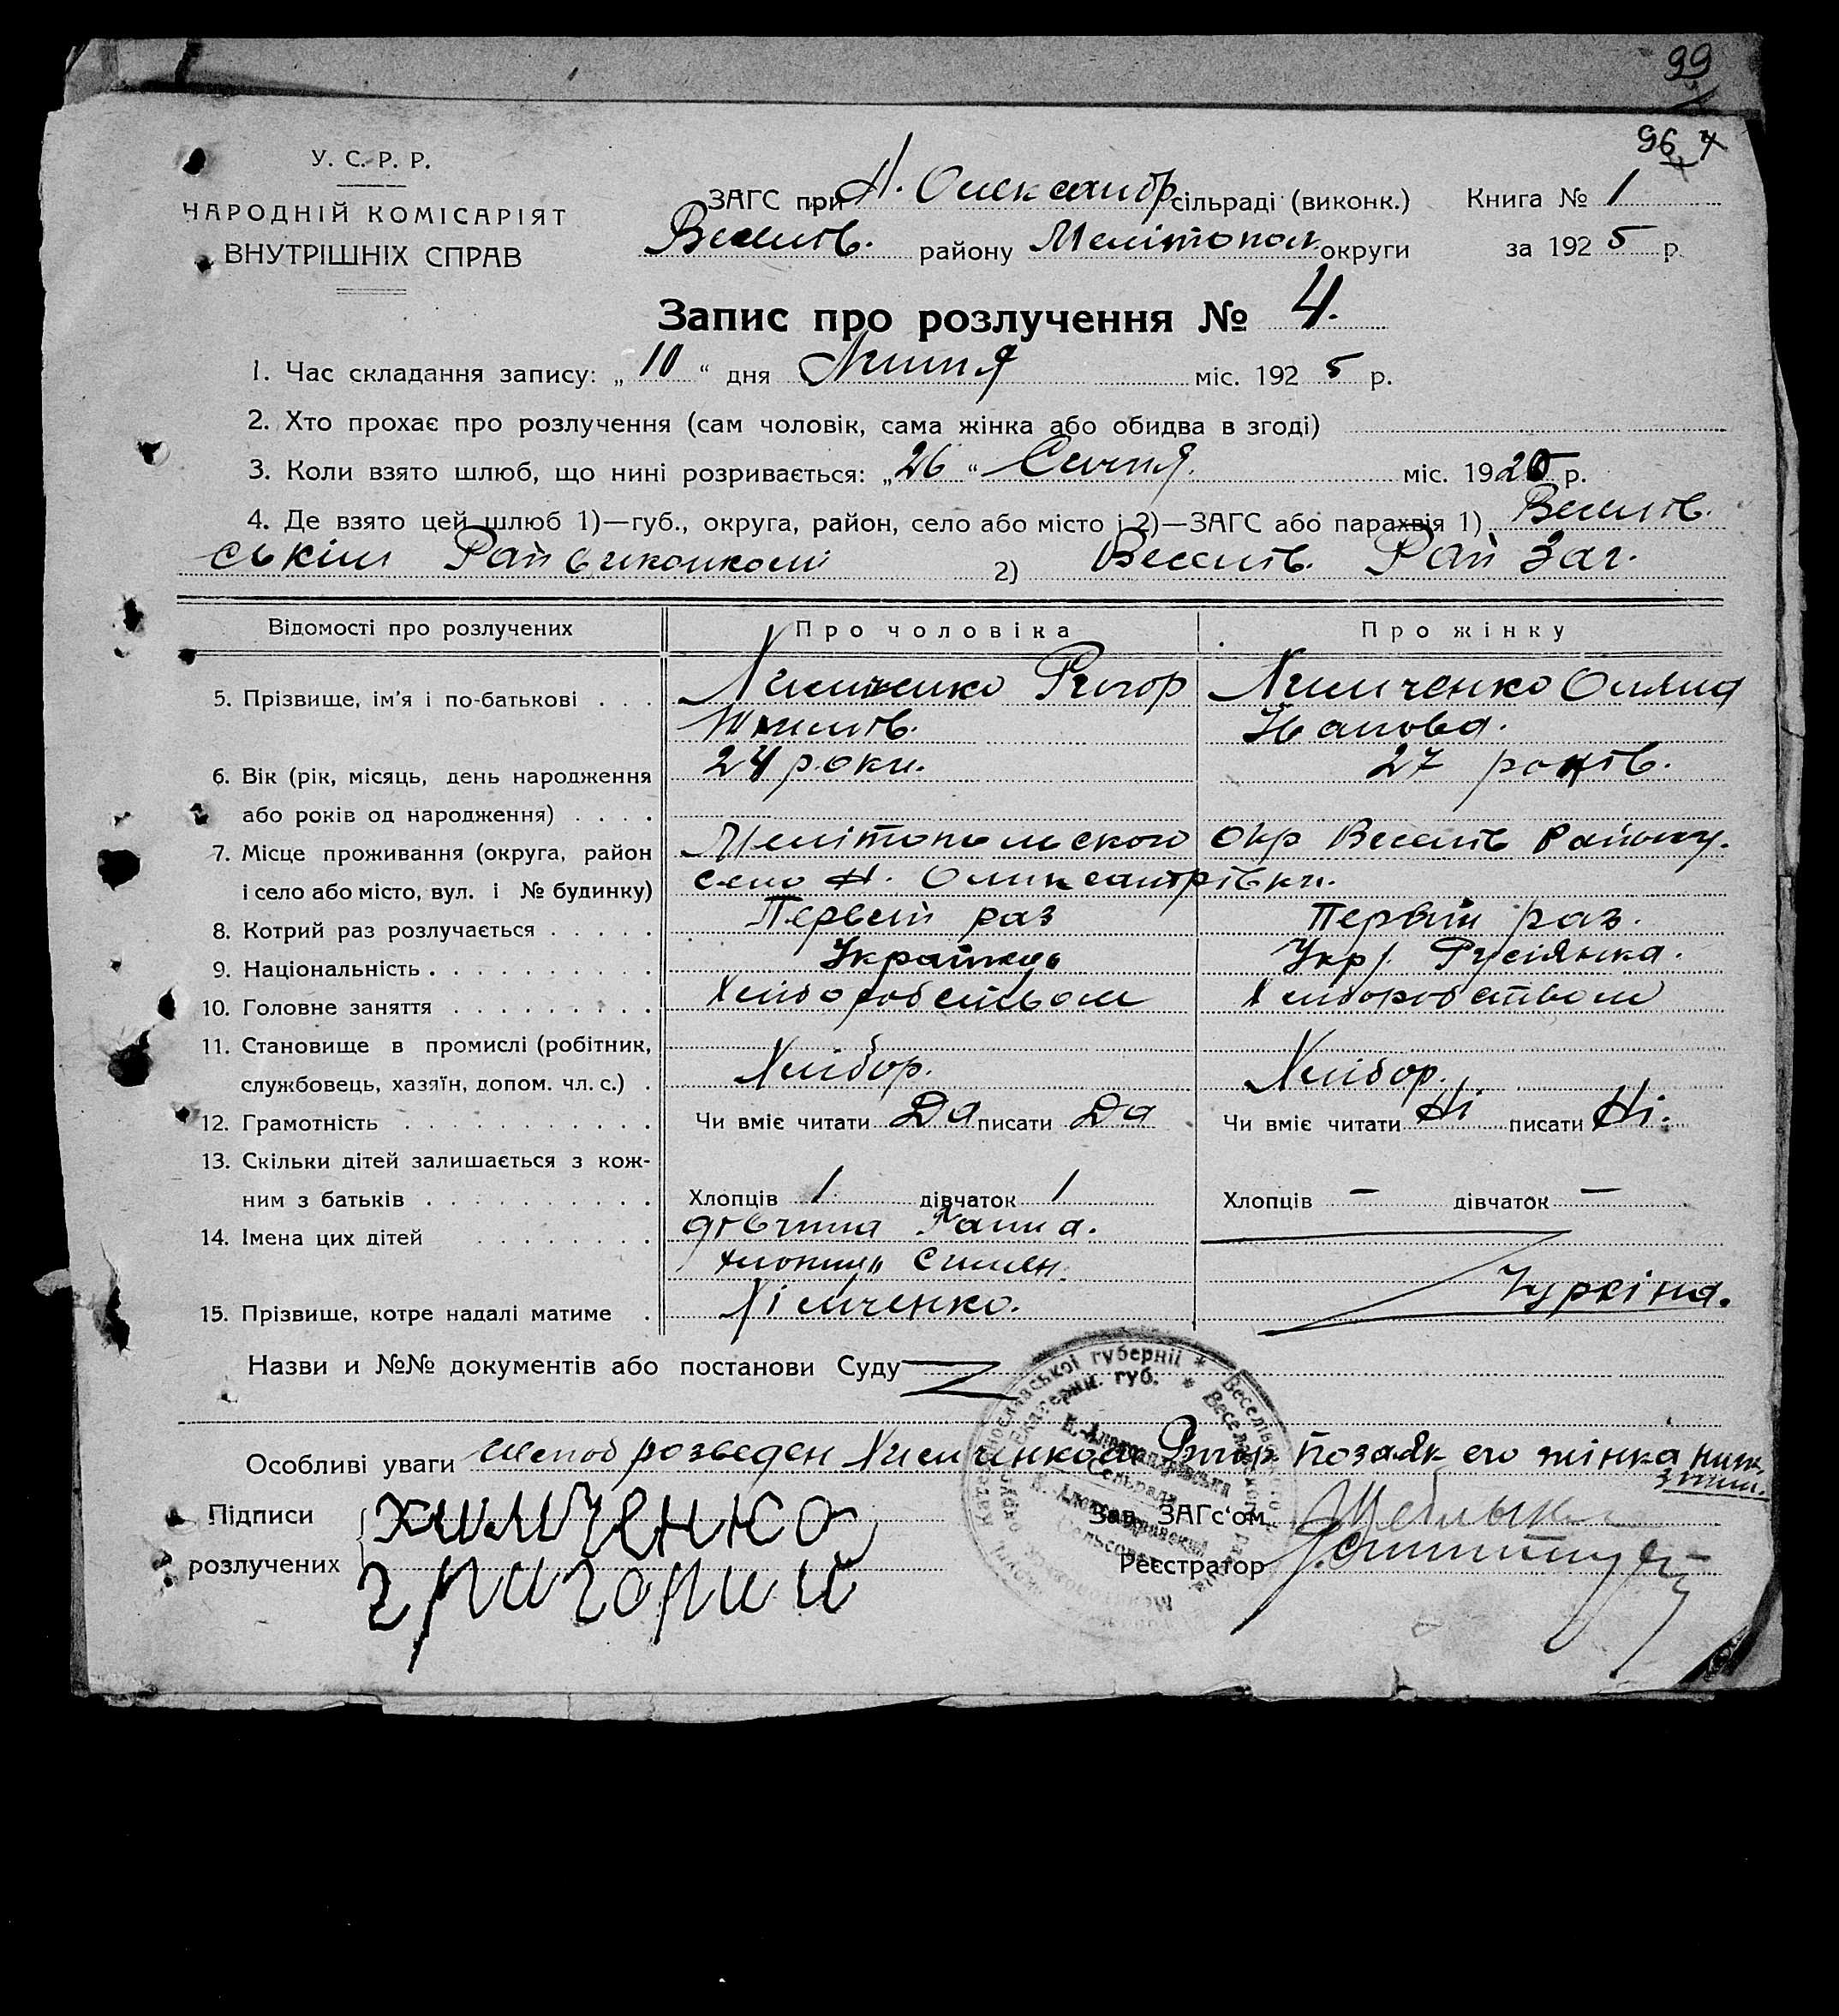 99
96 4
У. С. Р. Р.
НАРОДНІЙ КОМІСАРІЯТ
ВНУТРІШНІХ СПРАВ
ЗАГС при Н. Олександр сільраді (виконк.) Книга № 1
Веселів. району Мелітопол. округи за 1925 р.
Запис про розлучення № 4.
1. Час складання запису: „10“ дня Липня міс. 1925 р.
2. Хто прохає про розлучення (сам чоловік, сама жінка або обидва в згоді)
3. Коли взято шлюб, що нині розривається: „26“ Січня. міс. 1920 р.
4. Де взято цей шлюб 1)—губ., округа, район, село або місто і 2)—ЗАГС або парахвія 1) Веселів.
ськім Райвиконкомі 2) Веселів. Рай Заг.
Відомості про розлучених Про чоловіка Про жінку
5. Прізвище, ім'я і по-батькові Химченко Ригор Химченко Оляна
24 роки. 27 років.
6. Вік (рік, місяць, день народження
або років од народження)
7. Місце проживання (округа, район Мелітопольского Окр Веселів Району.
і село або місто, вул. і № будинку) село Н. Олександрівки.
8. Котрий раз розлучається Первий раз Первий раз.
9. Національність Українець Укр. Русіянка.
10. Головне заняття Хліборобством Хліборобством
11. Становище в промислі (робітник,
службовець, хазяїн, допом. чл. с.) Хлібор. Хлібор.
12. Грамотність Чи вміє читати Да писати Да Чи вміє читати Ні писати Ні.
13. Скільки дітей залишається з кож-
ним з батьків Хлопців 1 дівчаток 1 Хлопців — дівчаток —
14. Імена цих дітей дівчина Ганна.
хлопець Симен.
15. Прізвище, котре надалі матиме Хімченко. Чуркіна.
Назви и №№ документів або постанови Суду
Особливі уваги шлюб розведен Химченко Ригор позаяк его жінка
Підписи химченко Зав. ЗАГс‘ом
розлучених григорий Реєстратор